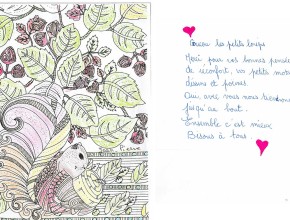 Coucou les petits loups
Merci pour vos bonnes pensées
de réconfort, vos petits mots
dessins et poèmes.
Oui, avec vous nous tiendrons
jusqu'au bout.
Ensemble c'est mieux.
Bisous à tous.
Pierre